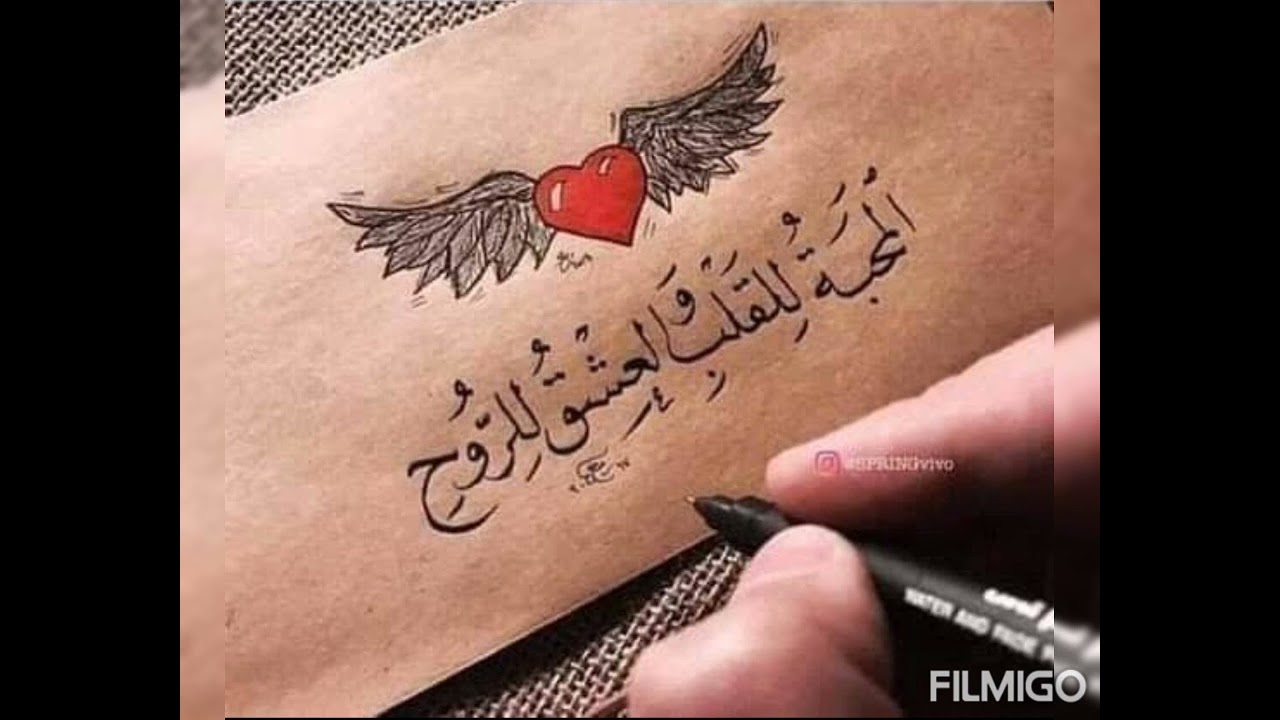 المَحَبَةُ لِلقَلْبِ وَالعِشْقُ لِلرُّوحِ
@SPRINGVIVO
uni
WATER AND FADE
FILMIGO